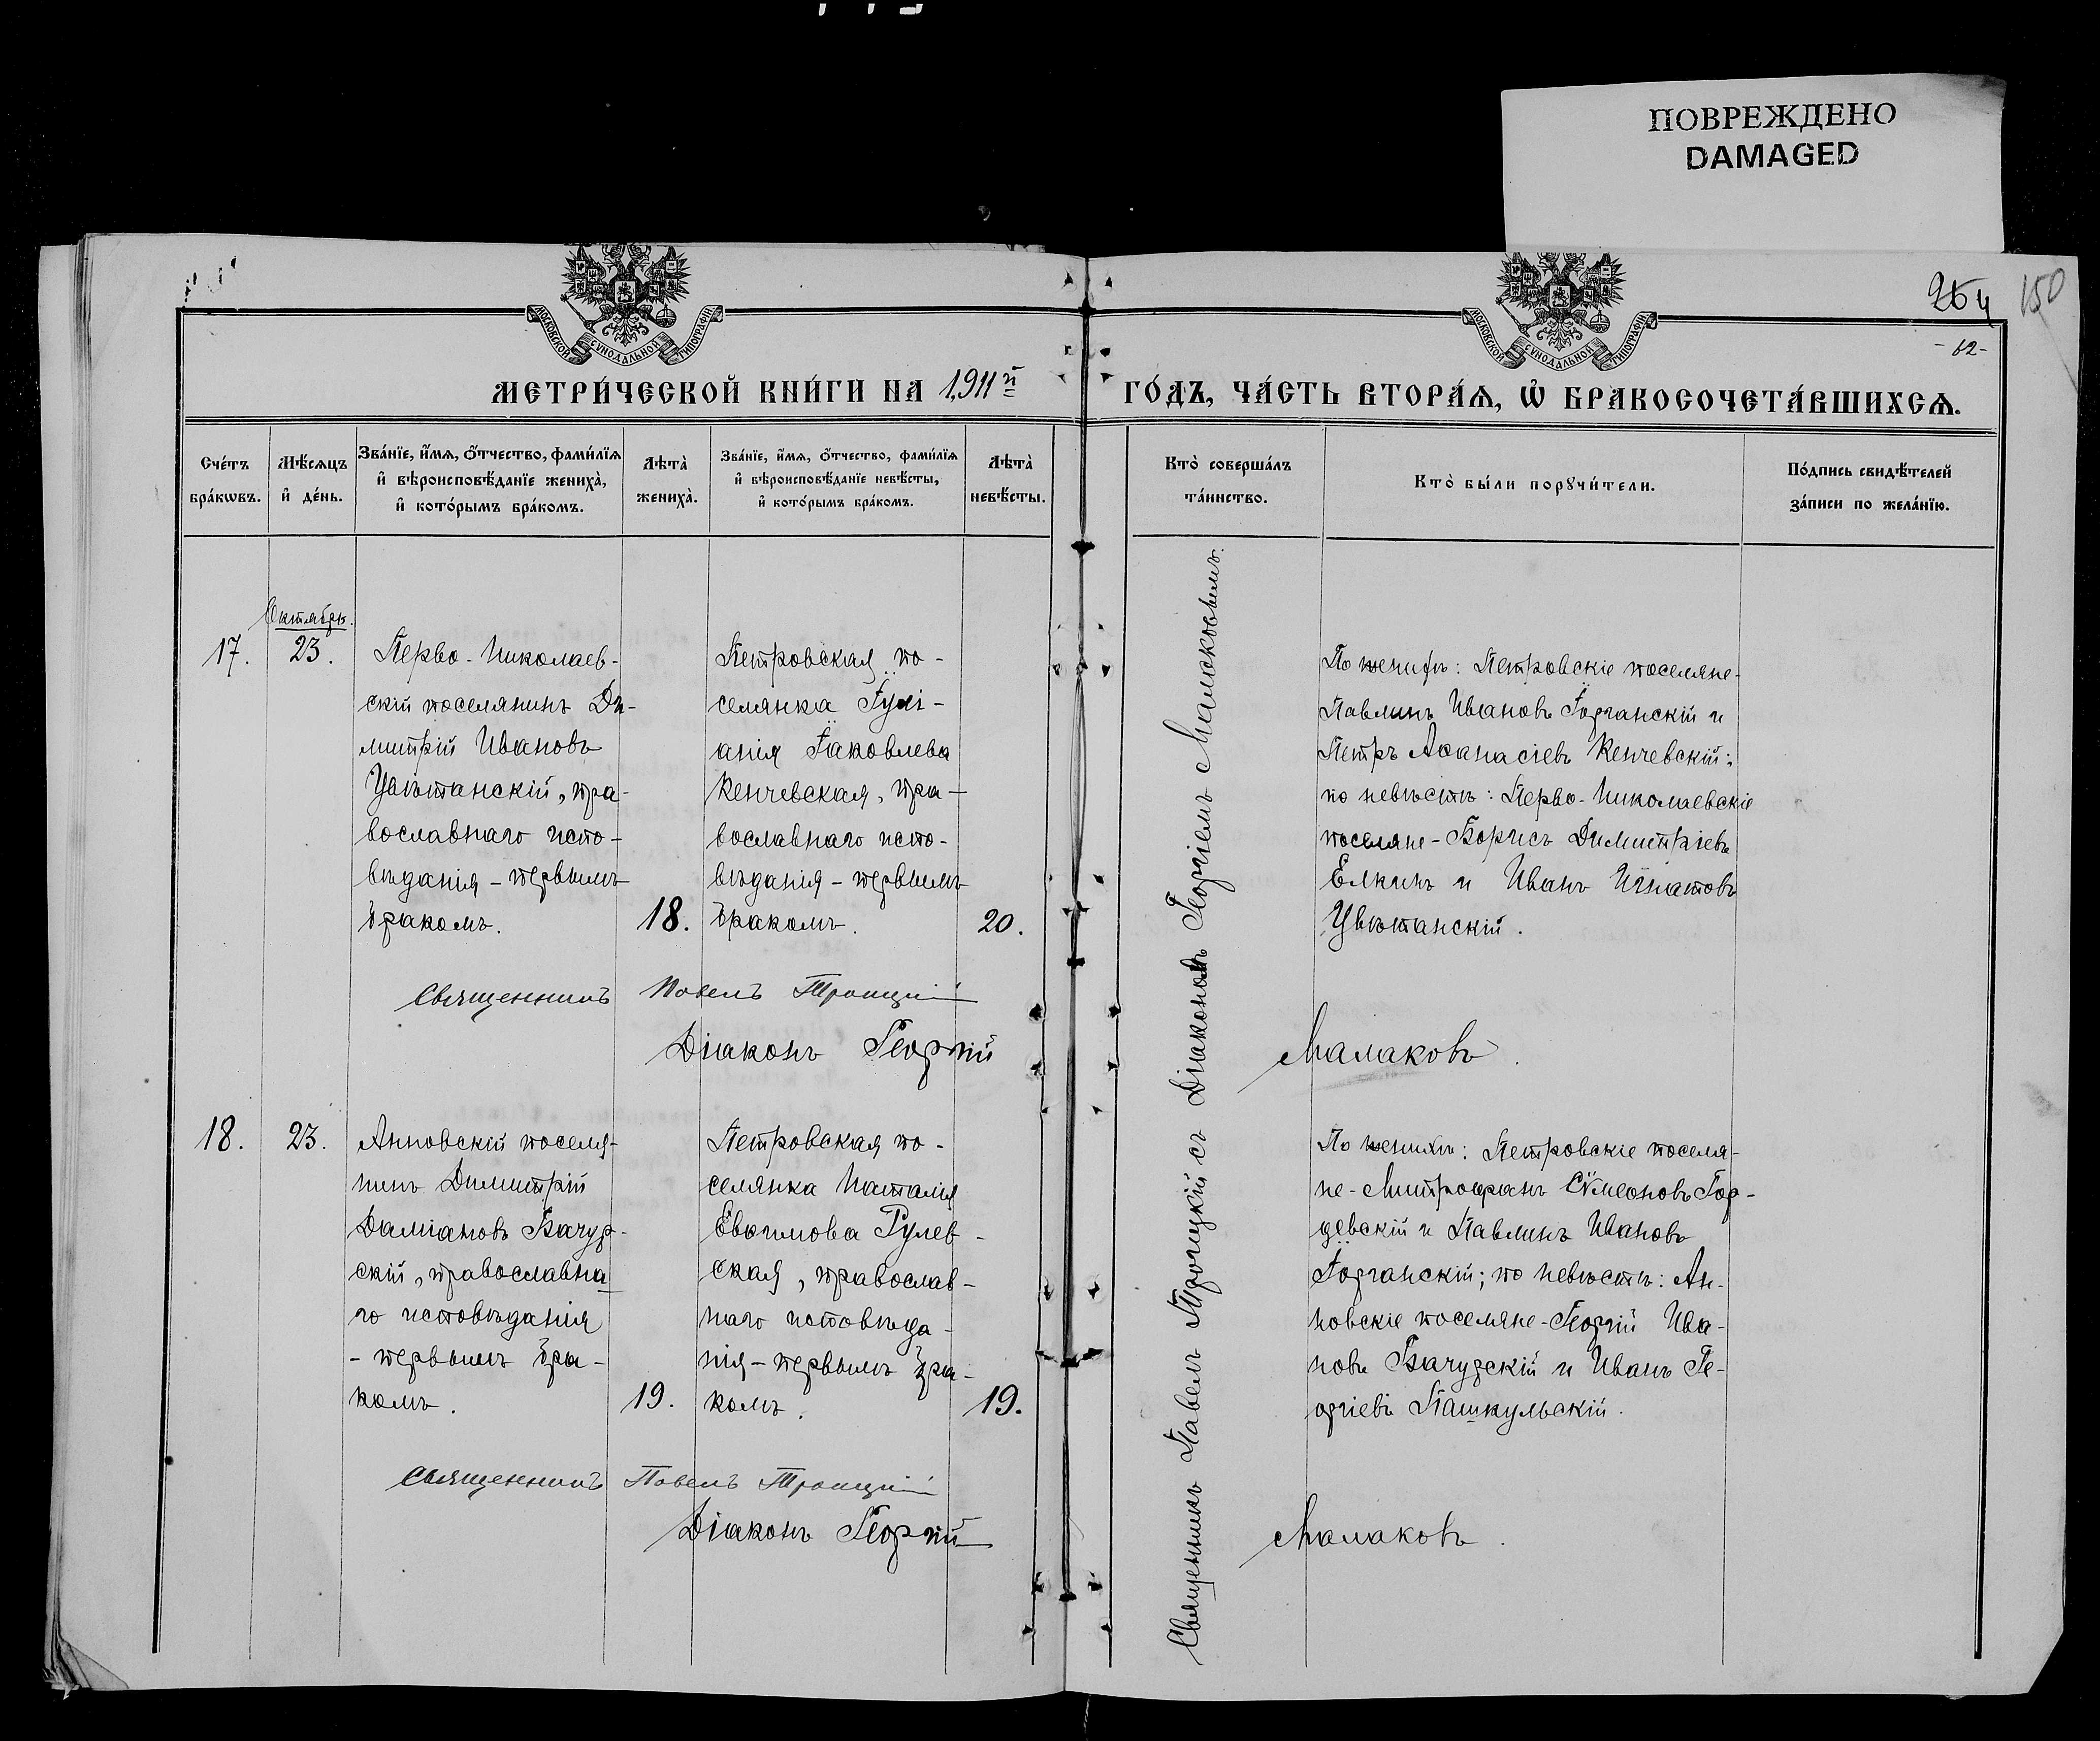 ПОВРЕЖДЕНО
DAMAGED
150
-62-
МОСКОВСКОЙ СѴНОДАЛЬНОЙ ТИПОГРАФІИ
МОСКОВСКОЙ СѴНОДАЛЬНОЙ ТИПОГРАФІИ
МЕТРИ́ЧЕСКОЙ КНИ́ГИ НА 1911й
ГО́ДЪ, ЧА́СТЬ ВТОРА́Ѧ, Ѡ҆ БРАКОСОЧЕТА́ВШИХСѦ.
Сче́тъ
бра́кѡвъ.
Мѣ́сѧцъ
и҆ де́нь.
Зва́нїе, и҆́мѧ, ѻ҆́тчество, фами́лїѧ
и҆ вѣроисповѣ́данїе жениха̀,
и҆ кото́рымъ бра́комъ.
Лѣта̀
жениха̀.
Зва́нїе, и҆́мѧ, ѻ҆́тчество, фами́лїѧ
и҆ вѣроисповѣ́данїе невѣ́сты,
и҆ кото́рымъ бра́комъ.
Лѣта̀
невѣ́сты.
Кто̀ соверша́лъ
та́инство.
Кто̀ бы́ли порꙋчи́тели.
По́дпись свидѣ́телей
за́писи по жела́нїю.
Октябрь.
17.
23.
Перво-Николаев-
скій поселянинъ Ди-
митрій Ивановъ
Цвѣтанскій, пра-
вославнаго испо-
вѣданія - первымъ
бракомъ.
18.
Петровская по-
селянка Іулі-
анія Іаковлева
Кенчевская, пра-
вославнаго испо-
вѣданія - первымъ
бракомъ.
20.
Священникъ Павелъ Троицкій съ Діакономъ Георгіемъ Малаковымъ.
По женихѣ: Петровскіе поселяне-
Павлинъ Ивановъ Іорганскій и
Петръ Аѳанасіевъ Кенчевскій;
по невѣстѣ: Перво-Николаевскіе
поселяне - Борисъ Димитріевъ
Елкинъ и Иванъ Игнатовъ
Цвѣтанскій.
Священникъ Павелъ Троицкій
Діаконъ Георгій Малаковъ.
18.
23.
Анновскій поселя-
нинъ Димитрій
Даміановъ Бачур-
скій, православна-
го исповѣданія
- первымъ бра-
комъ.
19.
Петровская по-
селянка Наталія
Евѳимова Рулев-
ская, православ-
наго исповѣда-
нія - первымъ бра-
комъ.
19.
По женихѣ: Петровскіе поселя-
не - Митрофанъ Сѵмеоновъ Гор-
девскій и Павлинъ Ивановъ
Іорганскій; по невѣстѣ: Ан-
новскіе поселяне - Георгій Ива-
новъ Бачурскій и Иванъ Ге-
оргіевъ Пашкульскій.
Священникъ Павелъ Троицкій
Діаконъ Георгій Малаковъ.